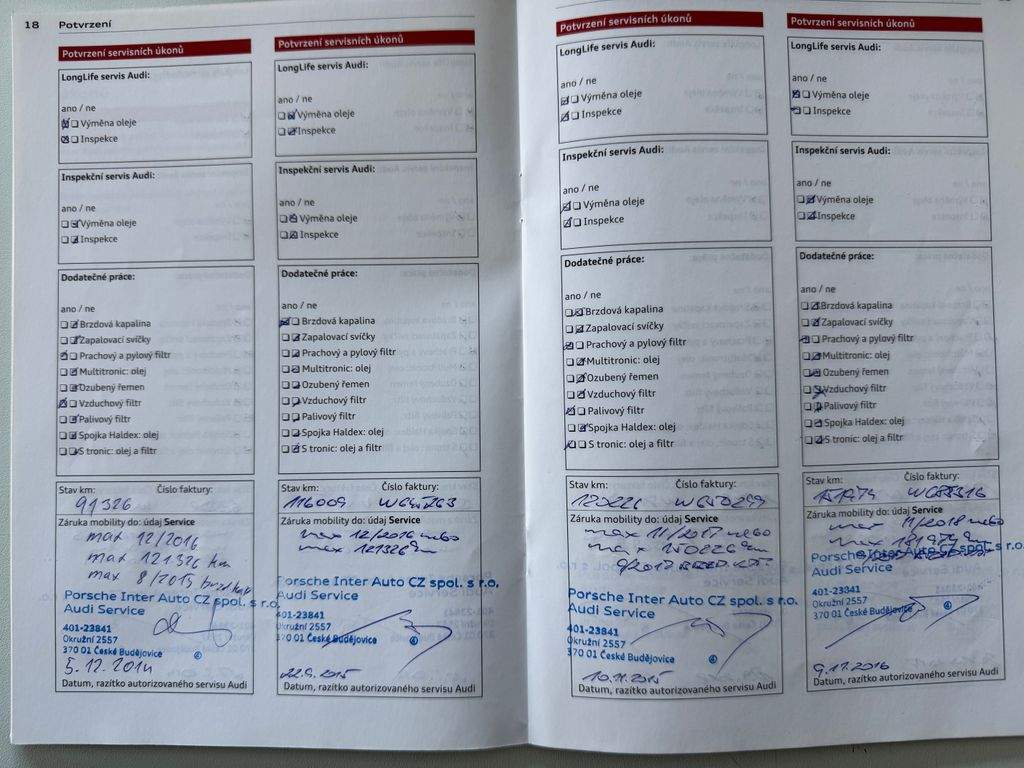 18 Potvrzení
Potvrzení servisních úkonů
LongLife servis Audi:
ano / ne
Výměna oleje
Inspekce
Inspekční servis Audi:
ano / ne
Výměna oleje
Inspekce
Dodatečné práce:
ano / ne
Brzdová kapalina
Zapalovací svíčky
Prachový a pylový filtr
Multitronic: olej
Ozubený řemen
Vzduchový filtr
Palivový filtr
Spojka Haldex: olej
S tronic: olej a filtr
Stav km: Číslo faktury:
91326
Záruka mobility do: údaj Service
max 12/2016
max 121326 km
max 8/2015 brzd kap
Porsche Inter Auto CZ spol. s r.o.
Audi Service
401-23841
Okružní 2557
370 01 České Budějovice 4
5.12.2014
Datum, razítko autorizovaného servisu Audi
Potvrzení servisních úkonů
LongLife servis Audi:
ano / ne
Výměna oleje
Inspekce
Inspekční servis Audi:
ano / ne
Výměna oleje
Inspekce
Dodatečné práce:
ano / ne
Brzdová kapalina
Zapalovací svíčky
Prachový a pylový filtr
Multitronic: olej
Ozubený řemen
Vzduchový filtr
Palivový filtr
Spojka Haldex: olej
S tronic: olej a filtr
Stav km: Číslo faktury:
116009
Záruka mobility do: údaj Service
max 12/2016 nebo
max 121326 km
Porsche Inter Auto CZ spol. s r.o.
Audi Service
401-23841
Okružní 2557
370 01 České Budějovice 4
22.9.2015
Datum, razítko autorizovaného servisu Audi
Potvrzení servisních úkonů
LongLife servis Audi:
ano / ne
Výměna oleje
Inspekce
Inspekční servis Audi:
ano / ne
Výměna oleje
Inspekce
Dodatečné práce:
ano / ne
Brzdová kapalina
Zapalovací svíčky
Prachový a pylový filtr
Multitronic: olej
Ozubený řemen
Vzduchový filtr
Palivový filtr
Spojka Haldex: olej
S tronic: olej a filtr
Stav km: Číslo faktury:
120226
Záruka mobility do: údaj Service
max 11/2017 nebo
max 150226 km
9/2017
Porsche Inter Auto CZ spol. s r.o.
Audi Service
401-23841
Okružní 2557
370 01 České Budějovice 4
10.11.2015
Datum, razítko autorizovaného servisu Audi
Potvrzení servisních úkonů
LongLife servis Audi:
ano / ne
Výměna oleje
Inspekce
Inspekční servis Audi:
ano / ne
Výměna oleje
Inspekce
Dodatečné práce:
ano / ne
Brzdová kapalina
Zapalovací svíčky
Prachový a pylový filtr
Multitronic: olej
Ozubený řemen
Vzduchový filtr
Palivový filtr
Spojka Haldex: olej
S tronic: olej a filtr
Stav km: Číslo faktury:
Záruka mobility do: údaj Service
max 11/2018 nebo
max km
Porsche Inter Auto CZ spol. s r.o.
Audi Service
401-23841
Okružní 2557
370 01 České Budějovice 4
9.11.2016
Datum, razítko autorizovaného servisu Audi